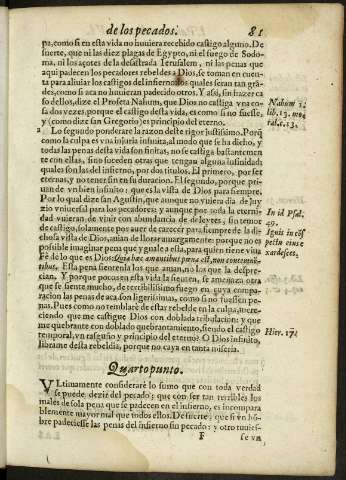 de los pecados. 81
pa, como si en esta vida no huuiera recebido castigo alguno. De
suerte, que ni las diez plagas de Egypto, ni el fuego de Sodo-
ma, ni los açotes de la desastrada Ierusalem, ni las penas que
aqui padecen los pecadores rebeldes a Dios, se toman en cuen-
ta para aliuiar los castigos del infierno: los quales seran tan grã-
des, como si aca no huuieran padecido otros. Y assi, sin hazer ca
so dellos, dize el Profeta Nahum, que Dios no castiga vna co-
sa dos vezes: porque el castigo desta vida, es como si no fuesse,
y (como dize san Gregorio) es principio del eterno.
Nahum 1.
lib. 13. mo
2 Lo segundo ponderare la razon deste rigor justissimo. Porq̃
como la culpa es vna injuria infinita, al modo que se ha dicho, y
todas las penas desta vida son finitas, no se castiga bastantemen
te con ellas, sino suceden otras que tengan alguna infinidad:
quales son las del infierno, por dos titulos. El primero, por ser
eternas, y no tener fin en su duracion. El segundo, porque pri-
uan de vn bien infinito: que es la vista de Dios para siempre.
Por lo qual dize san Agustin, que aunque no vuiera dia de juy
zio vniuersal para los pecadores: y aunque por toda la eternie
dad vuieran de viuir con abundancia de deleytes, sin temor
de castigo, solamente por auer de carecer para siempre de la di-
chosa vista de Dios, auian de llorar amargamente: porque no es
possible imaginar pena que yguale a esta, para quien tiene viua
Fè de lo que es Dios: Quia hæc amantibus pœna est, non contemnen-
tibus. Esta pena sienten la los que aman, no los que la despre-
cian. Y porque pocos en esta vida la sienten, se amenazan otra
que se siente mucho, de terribilissimo fuego en cuya compa-
racion las penas de aca son ligerissimas, como si no fuessen pe-
nas. Pues como no temblare de estar rebelde en la culpa, mere-
ciendo que me castigue Dios con doblada tribulacion: y que
me quebrante con doblado quebrantamiento, siendo el castigo
temporal, vn rasguño y principio del eterno? O Dios infinito,
librame desta rebeldia, porque no cayga en tanta miseria.
In id Psal.
49.
Ignis in cõs
pectu eius e
xardescet.
Hier. 17.
Quarto punto.
VLtimamente considerarè lo sumo que con toda verdad
se puede dezir del pecado: que con ser tan terribles los
males de sola pena que se padecen en el infierno, es incompara
blemente mayor mal que todos ellos. De suerte, que si vn hõ-
bre padeciesse las penas del infierno sin pecado: y otro tuuies-
F se vn